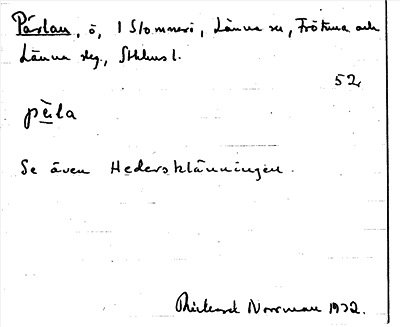 Pärlan, ö, I Slommerö, Länna sn, Frötuna och
Länna slg., Sthlms l.
52
pä̀la
Se även Hedersklänningen.
Rickard Norrman 1932.